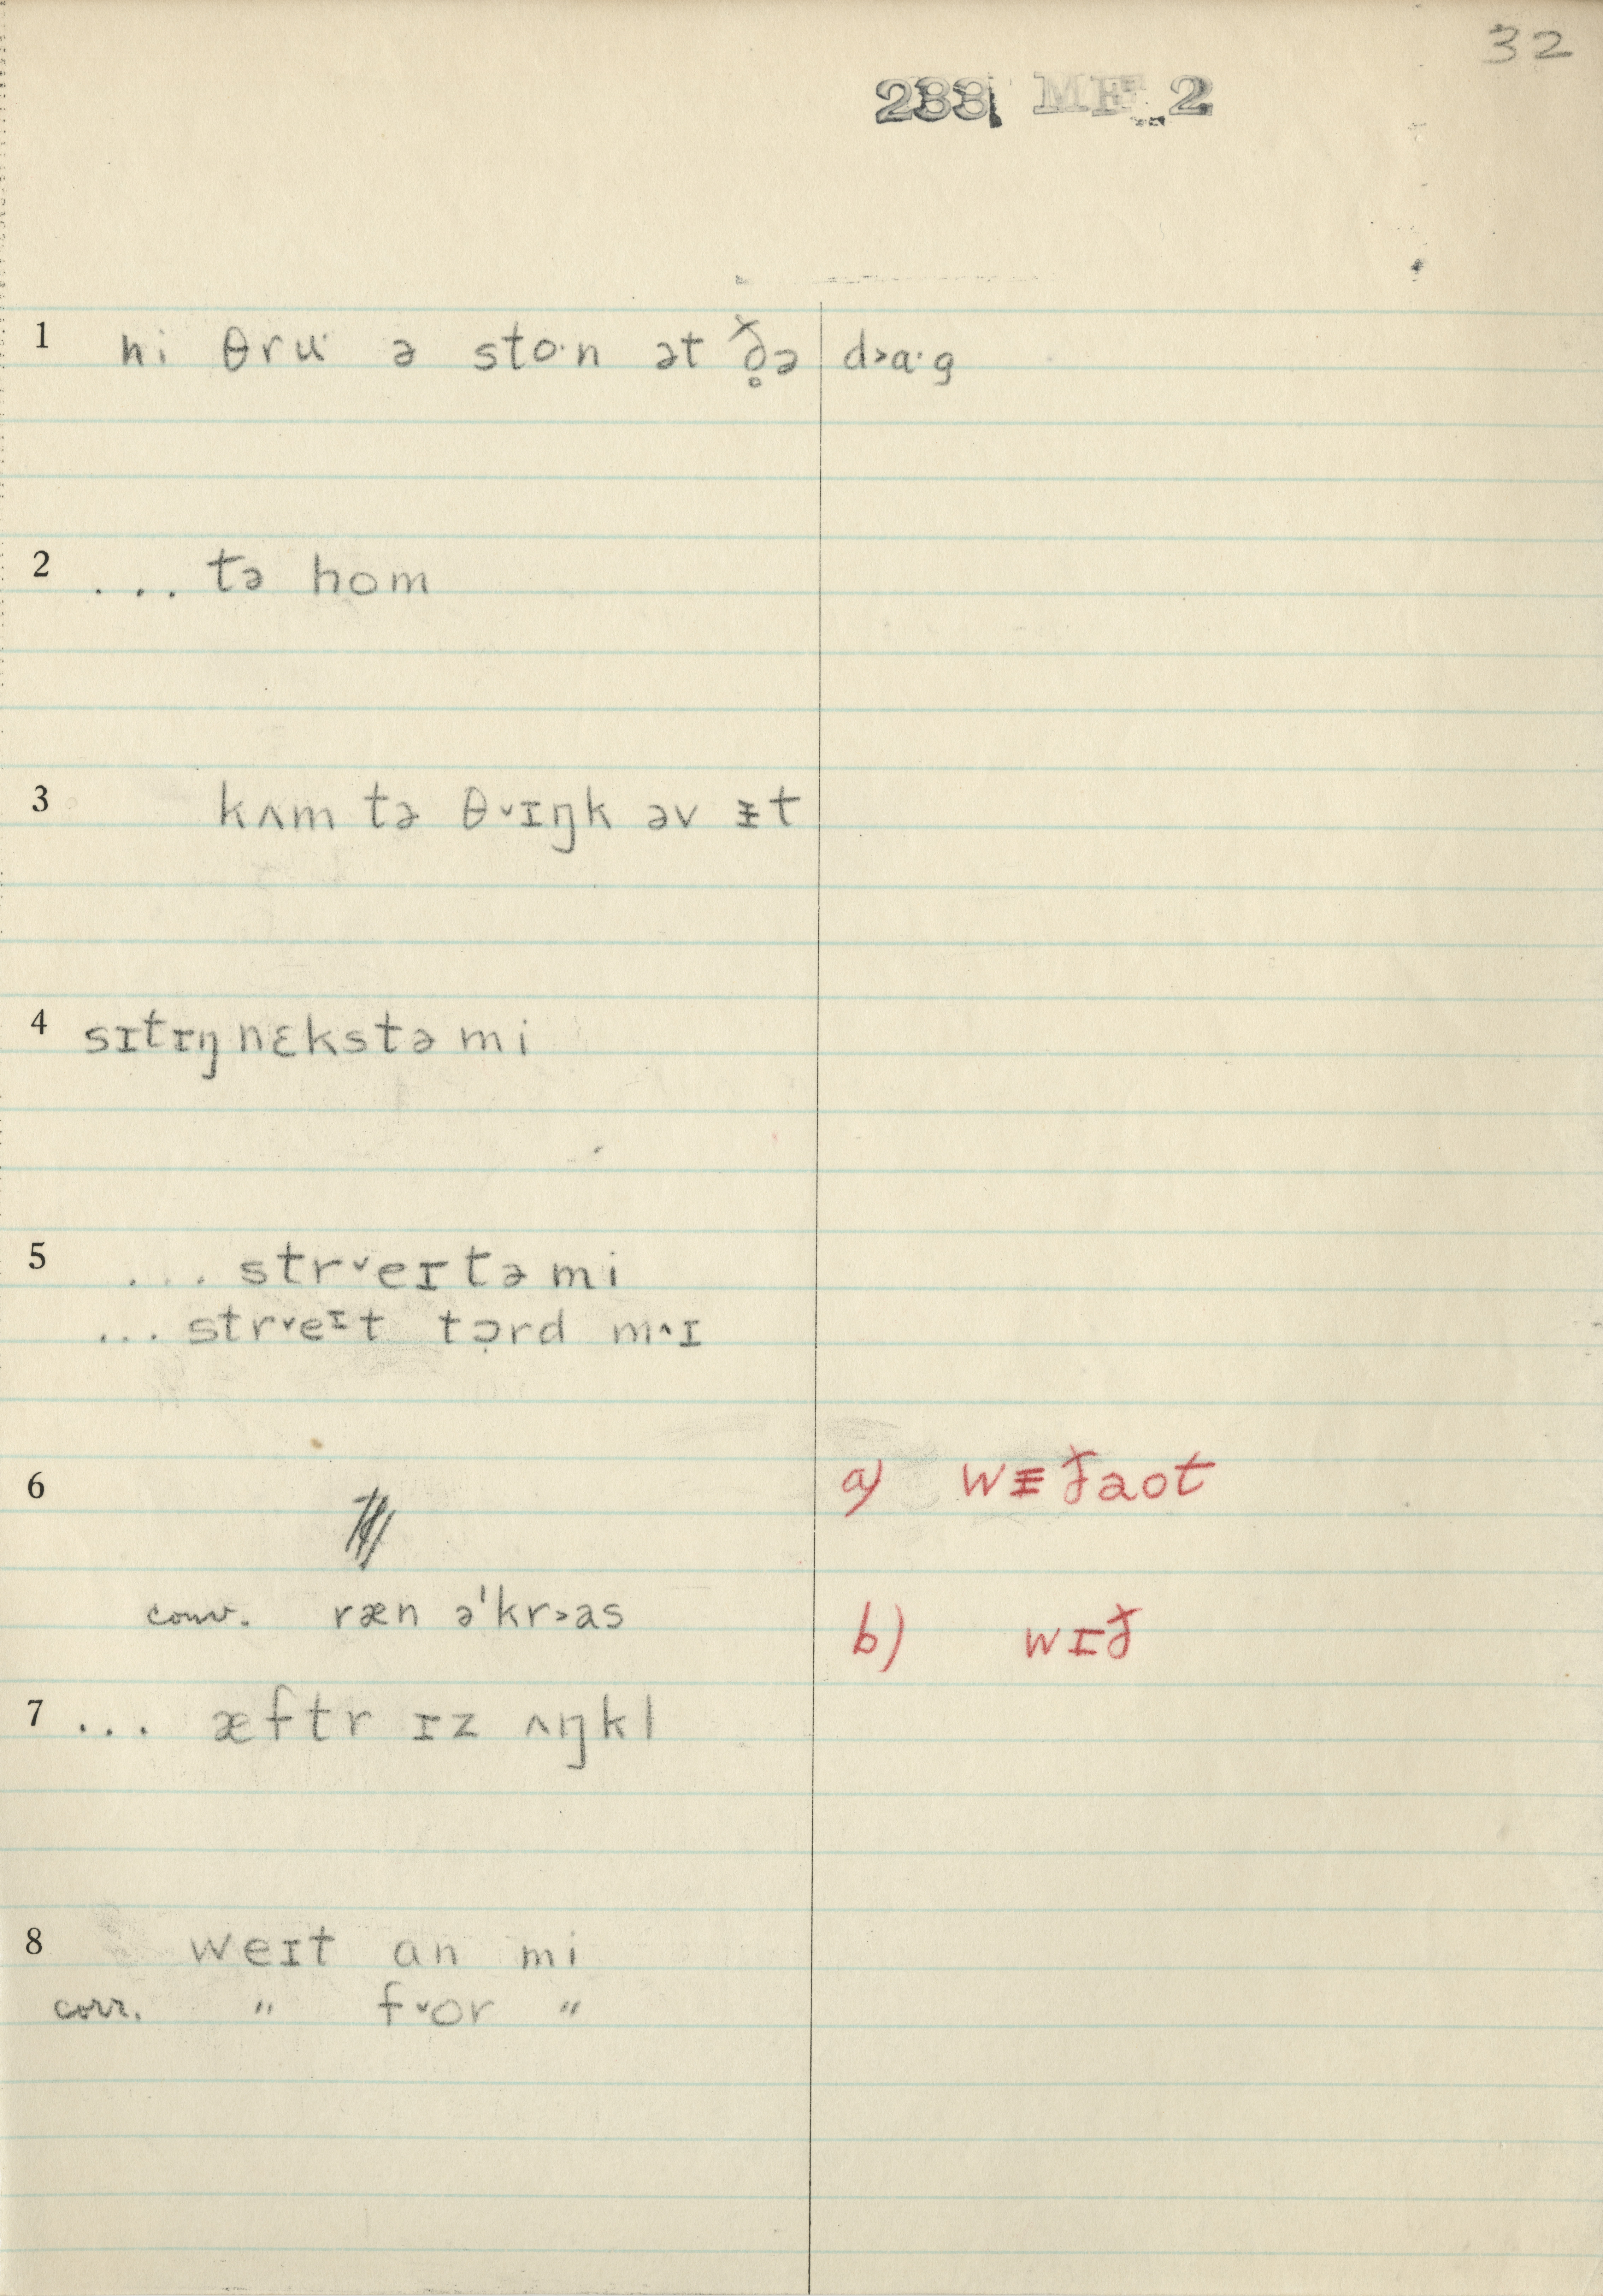 32
233 MF 2
1 hi θru· ə sto·n ət ð̥ə d˃ɑ·g
2 ... tə hom
3 kʌm tə θ˅ɪŋk əv ᵻt
4 sɪtɪŋ nɛkstə mi
5 ... str˅eɪtə mi
... str˅eᶦt tə̣rd m˄ɪ
6 a) wᵻðaot
conv. ræn ə'kr˃ɑs b) wɪð
7 ... æftr ɪz ʌŋkl
8 weɪt ɑn mi
corr. " f˅or "